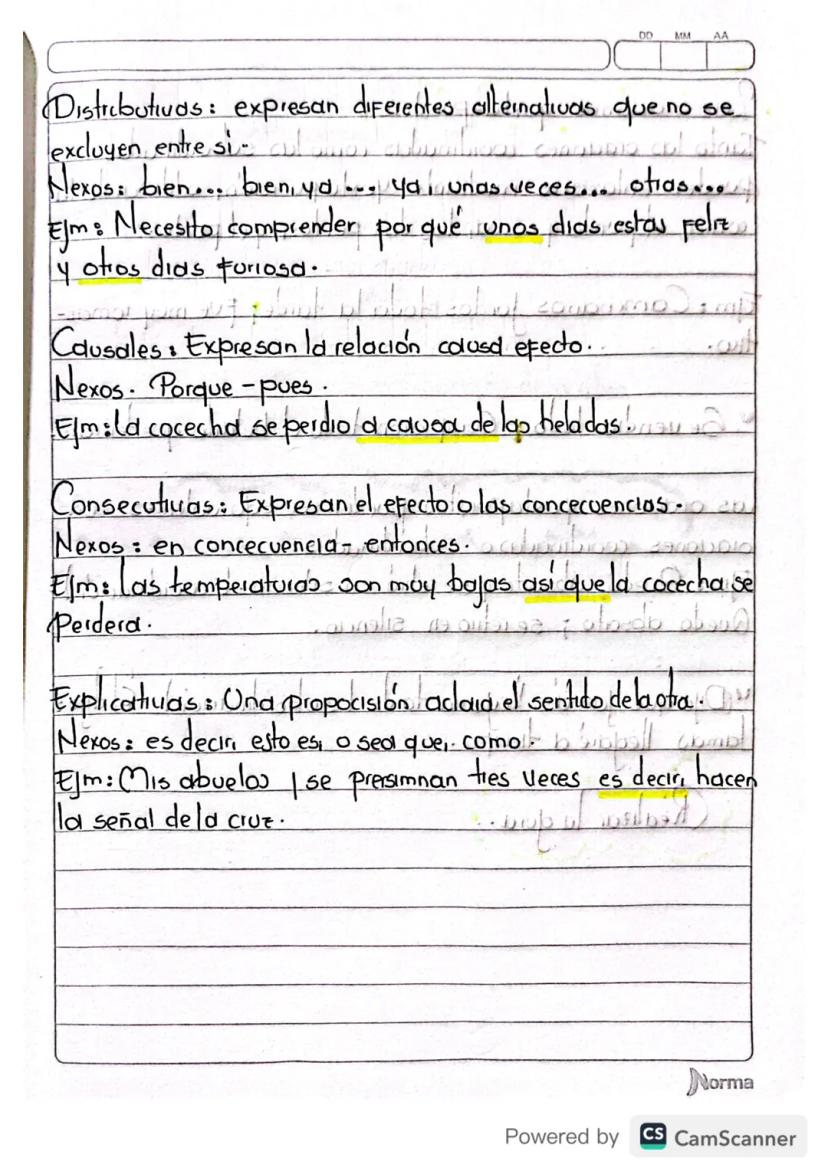 DD MM AA
Distributivas: expresan diferentes alternativas que no se
excluyen entre si.
Nexos: bien... bien, ya ... ya, unas veces... otras...
Ejm: Necesito, comprender por qué unos dias estas feliz
y otros dias furiosa.
Causales: Expresan la relación causa efecto.
Nexos. Porque - pues.
Ejm: la cocecha se perdio a causa de las heladas.
Consecutivas: Expresan el efecto o las concecuencias.
Nexos: en concecuencia - entonces.
Ejm: las temperaturas son muy bajas así que la cocecha se
Perdera.
Explicativas: Una propocisión aclara el sentido de la otra.
Nexos: es decir, esto es, o sea que, como.
Ejm: Mis abuelos, se presimnan tres veces es decir, hacen
la señal de la cruz.
Norma
Powered by CS CamScanner